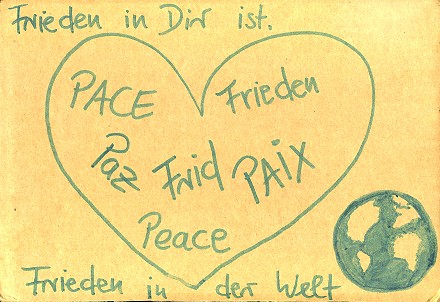 Frieden in Dir ist.
PACE Frieden
Paz Frid PAIX
Peace
Frieden in der Welt